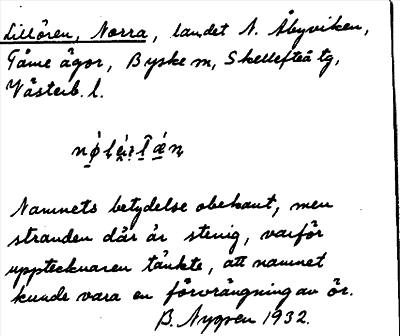 Lillören, Norra, landet N. Åbyviken,
Tåme ägor, Byske m, Skellefteå tg,
Västerb. l.
Namnets betydelse obekant, men
stranden där är stenig, varför
upptecknaren tänkte, att namnet
kunde vara en förvrängning av ör.
B. Nygren 1932.